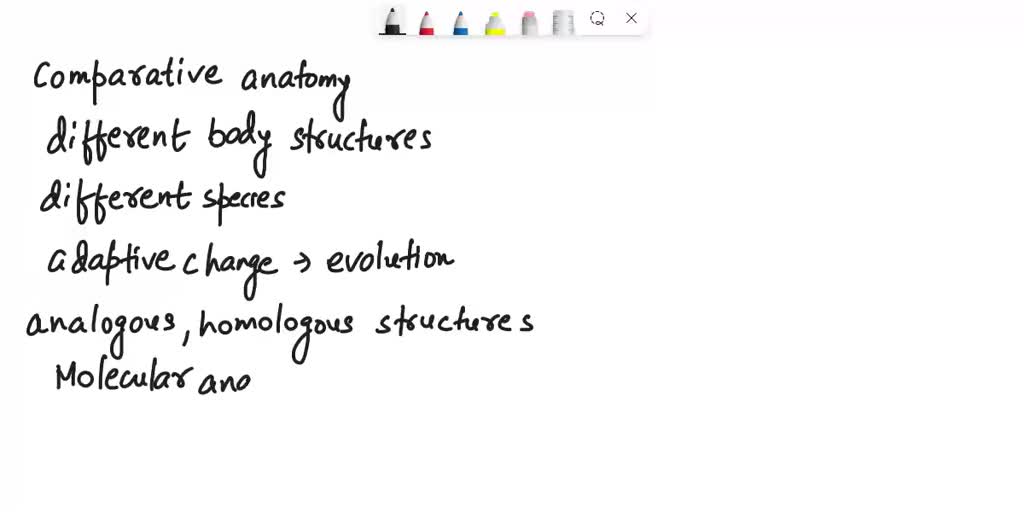 Comparative anatomy
different body structures
different species
adaptive change → evolution
analogous, homologous structures
Molecular ana